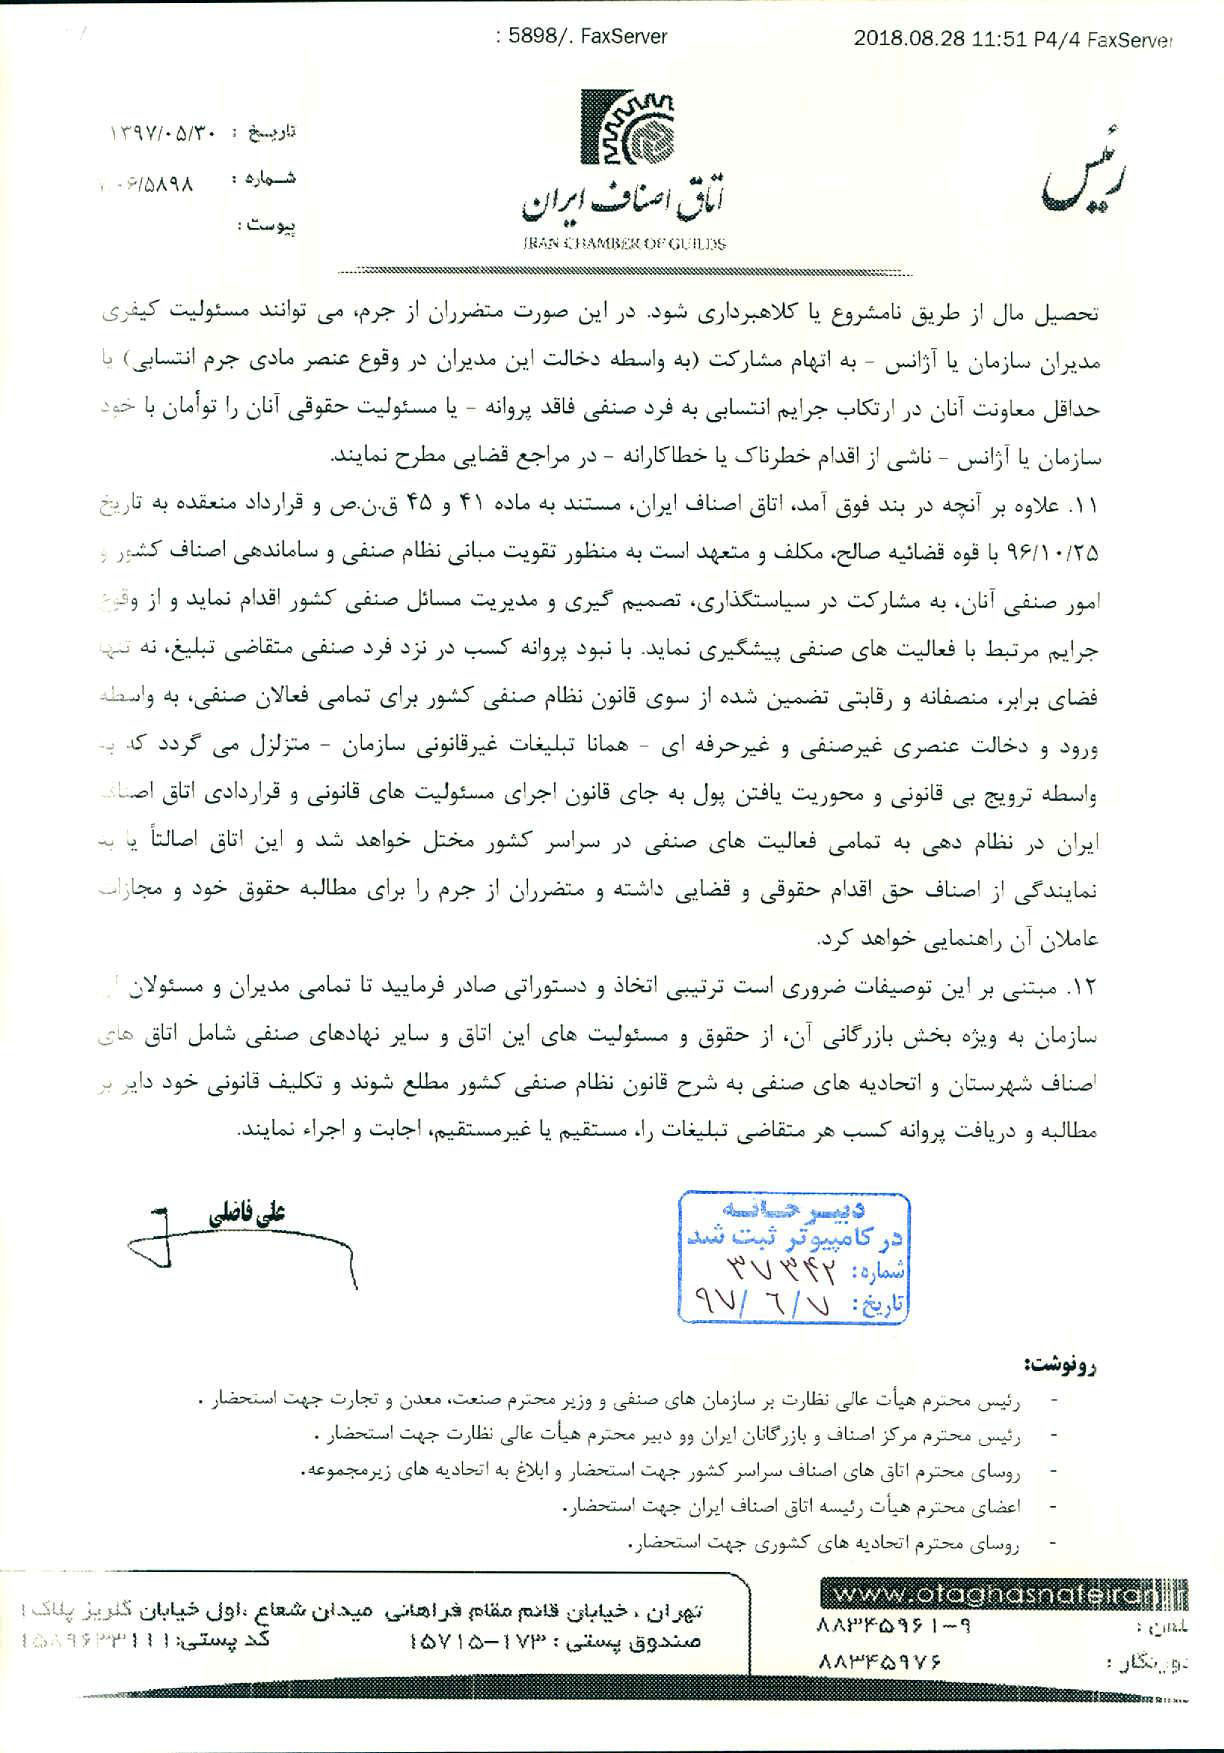 : 5898/. FaxServer
2018.08.28 11:51 P4/4 FaxServer
رئیس
اتاق اصناف ایران
IRAN CHAMBER OF GUILDS
تاریخ : ۱۳۹۷/۰۵/۳۰
شماره : ۰۶/۵۸۹۸
پیوست :
تحصیل مال از طریق نامشروع یا کلاهبرداری شود. در این صورت متضرران از جرم، می توانند مسئولیت کیفری
مدیران سازمان یا آژانس - به اتهام مشارکت (به واسطه دخالت این مدیران در وقوع عنصر مادی جرم انتسابی) یا
حداقل معاونت آنان در ارتکاب جرایم انتسابی به فرد صنفی فاقد پروانه - یا مسئولیت حقوقی آنان را توأمان با خود
سازمان یا آژانس - ناشی از اقدام خطرناک یا خطاکارانه - در مراجع قضایی مطرح نمایند.
۱۱. علاوه بر آنچه در بند فوق آمد، اتاق اصناف ایران، مستند به ماده ۴۱ و ۴۵ ق.ن.ص و قرارداد منعقده به تاریخ
۹۶/۱۰/۲۵ با قوه قضائیه صالح، مکلف و متعهد است به منظور تقویت مبانی نظام صنفی و ساماندهی اصناف کشور و
امور صنفی آنان، به مشارکت در سیاستگذاری، تصمیم گیری و مدیریت مسائل صنفی کشور اقدام نماید و از وقوع
جرایم مرتبط با فعالیت های صنفی پیشگیری نماید. با نبود پروانه کسب در نزد فرد صنفی متقاضی تبلیغ، نه تنها
فضای برابر، منصفانه و رقابتی تضمین شده از سوی قانون نظام صنفی کشور برای تمامی فعالان صنفی، به واسطه
ورود و دخالت عنصری غیرصنفی و غیرحرفه ای - همانا تبلیغات غیرقانونی سازمان - متزلزل می گردد که به
واسطه ترویج بی قانونی و محوریت یافتن پول به جای قانون اجرای مسئولیت های قانونی و قراردادی اتاق اصناف
ایران در نظام دهی به تمامی فعالیت های صنفی در سراسر کشور مختل خواهد شد و این اتاق اصالتاً یا به
نمایندگی از اصناف حق اقدام حقوقی و قضایی داشته و متضرران از جرم را برای مطالبه حقوق خود و مجازات
عاملان آن راهنمایی خواهد کرد.
۱۲. مبتنی بر این توصیفات ضروری است ترتیبی اتخاذ و دستوراتی صادر فرمایید تا تمامی مدیران و مسئولان
سازمان به ویژه بخش بازرگانی آن، از حقوق و مسئولیت های این اتاق و سایر نهادهای صنفی شامل اتاق های
اصناف شهرستان و اتحادیه های صنفی به شرح قانون نظام صنفی کشور مطلع شوند و تکلیف قانونی خود دایر بر
مطالبه و دریافت پروانه کسب هر متقاضی تبلیغات را، مستقیم یا غیرمستقیم، اجابت و اجراء نمایند.
علی فاضلی
دبیرخانه
در کامپیوتر ثبت شد
شماره: ۳۷۳۴۲
تاریخ: ۹۷/۶/۷
رونوشت:
- رئیس محترم هیأت عالی نظارت بر سازمان های صنفی و وزیر محترم صنعت، معدن و تجارت جهت استحضار .
- رئیس محترم مرکز اصناف و بازرگانان ایران وو دبیر محترم هیأت عالی نظارت جهت استحضار .
- روسای محترم اتاق های اصناف سراسر کشور جهت استحضار و ابلاغ به اتحادیه های زیرمجموعه.
- اعضای محترم هیأت رئیسه اتاق اصناف ایران جهت استحضار.
- روسای محترم اتحادیه های کشوری جهت استحضار.
www.otaghasnafeiran.ir
تلفن : ۸۸۳۴۵۹۶۱-۹
دورنگار : ۸۸۳۴۵۹۷۶
تهران ، خیابان قائم مقام فراهانی میدان شعاع ،اول خیابان گلریز پلاک ۱
صندوق پستی : ۱۷۳-۱۵۷۱۵ کد پستی: ۱۵۸۹۶۳۳۱۱۱